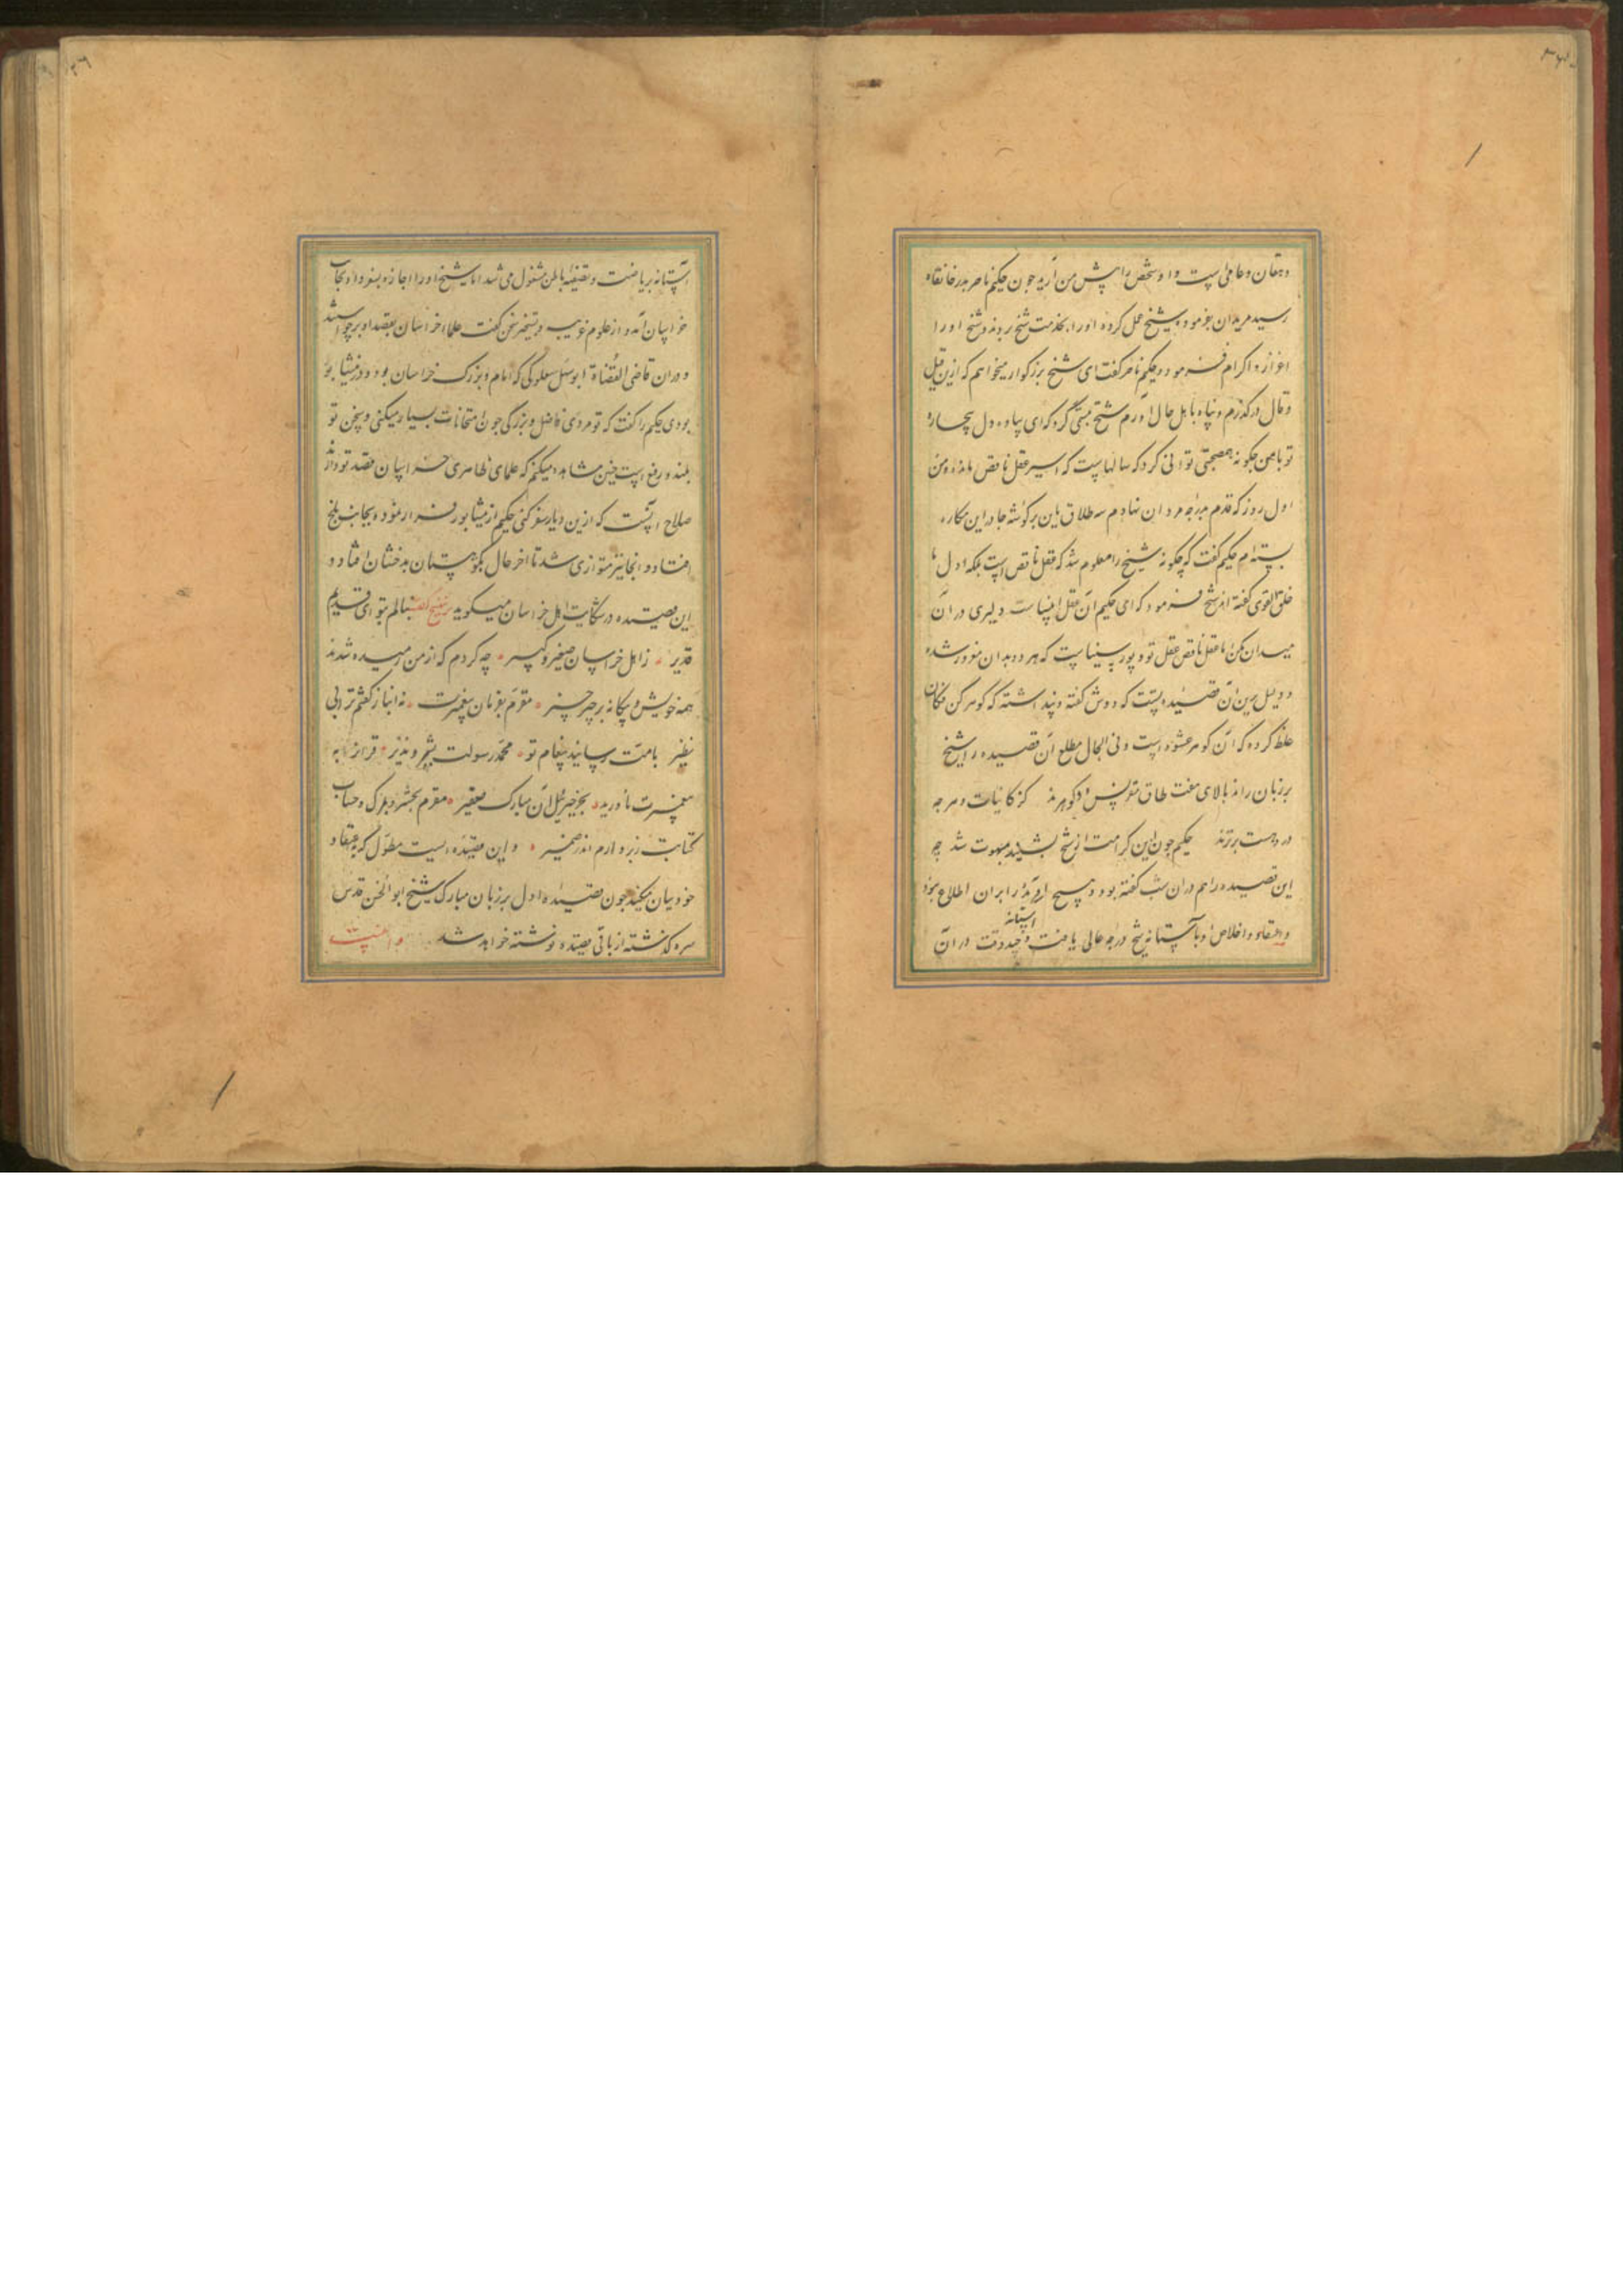 دهقان و عامی است و او شخص را پیش من آرید چون حکیم ناصر بدر خانقاه
رسید مریدان بفرموده شیخ عمل کرده او را بخدمت شیخ بردند و شیخ او را
اعزاز و اکرام فرمود و حکیم ناصر گفت ای شیخ بزرگوار میخواهم که ازین قیل
وقال درگذرم و پناه باهل حال آورم شیخ تبسمی کرد که ای ساده دل بیچاره
تو با من چگونه همصحبتی توانی کرد که سالهاست که اسیر عقل ناقص مانده و من
اول روز که قدم بدرجه مردان نهادم سه طلاق باین بر گوشه چادر این مکاره
بسته‌ام حکیم گفت که چگونه شیخ را معلوم شد که عقل ناقص است بلکه اول ما
خلق الله العقل گفته‌اند شیخ فرمود که ای حکیم آن عقل انبیاست دلیری در آن
میدان مکن اما عقل ناقص عقل تو و پور سیناست که هر دو بدان مغرور شده
و دلیل برین آن قصیده است که دوش گفته و پنداشته که گوهر کن فکان
غلط کرده که آن گوهر عشق است و فی الحال مطلع آن قصیده را شیخ
بر زبان راند بالای هفت طاق مقرنس دو گوهرند کز کاینات و هر چه
درو هست برترند حکیم چون این کرامت از شیخ بشنید مبهوت شد چه
این قصیده را هم در آن شب گفته بود و هیچ آفریده را بر آن اطلاع نبود
و اعتقاد و اخلاص او بآستانه شیخ درجه عالی یافت و چند وقت در آن
آستانه
آستانه بریاضت و تصفیه باطن مشغول می شد اما شیخ او را اجازه بنمود او بجانب
خراسان آمد و از علوم غریبه و تسخیر سخن گفت علماء خراسان بقصد او برخواستند
و در آن قاضی القضاة ابو سهل صعلوکی که امام و بزرگ خراسان بود و در نیشابور
بودی حکیم را گفت که تو مردی فاضل و بزرگی چون امتحانات بسیار میکنی و سخن تو
بلند و رفیع است چنین مشاهده میکنم که علمای ظاهری خراسان قصد تو دارند
صلاح آنست که ازین دیار سفر کنی حکیم از نیشابور فرار نموده بجانب بلخ
افتاد و آنجا نیز متواری شد تا آخر حال بکوهستان بدخشان افتاد و
این قصیده در شکایت اهل خراسان میگوید بنالم بتو ای قدیم
قدیر ز اهل خراسان صغیر و کبیر چه کردم که از من رمیده شدند
همه خویش و بیگانه بر خیر خیر مقرم بفرمان پیغمبرت نه انباز گفتم ترا نی
نظیر بامت رسانید پیغام تو محمد رسولت بشیر و نذیر قرآن را به
پیغمبرت ناورید بجز جبرئیل آن مبارک سفیر مقرم بحشر و بمرگ و حساب
کتابت ز بر دارم اندر ضمیر و این قصیده ایست مطول که اعتقاد
خود بیان میکند چون قصیده اول بر زبان مبارک شیخ ابو الحسن قدس
سره گذشته از باقی قصیده نوشته خواهد شد و اینست